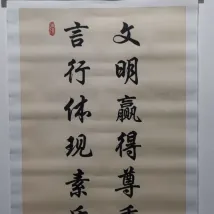 文明赢得尊重
言行体现素